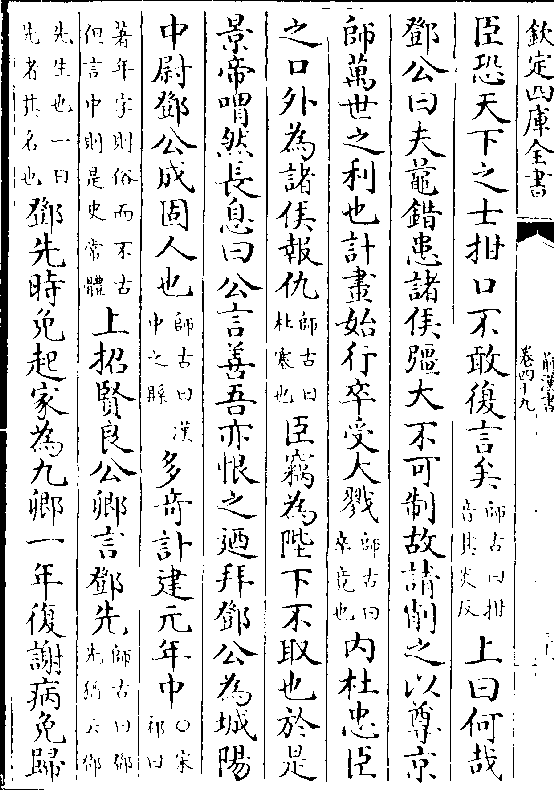 欽定四庫全書
前漢書
卷四十九
臣恐天下之士拑口不敢復言矣師古曰拑音其炎反上曰何哉
鄧公曰夫鼂錯患諸侯彊大不可制故請削之以尊京
師萬世之利也計畫始行卒受大戮師古曰卒竟也内杜忠臣
之口外為諸侯報仇師古曰杜塞也臣竊為陛下不取也於是
景帝喟然長息曰公言善吾亦恨之廼拜鄧公為城陽
中尉鄧公成固人也師古曰漢中之縣多奇計建元年中○宋祁曰
著年字則俗而不古但言中則是史常體上招賢良公卿言鄧先師古曰鄧先猶云鄧
先生也一曰先者其名也鄧先時免起家為九卿一年復謝病免歸